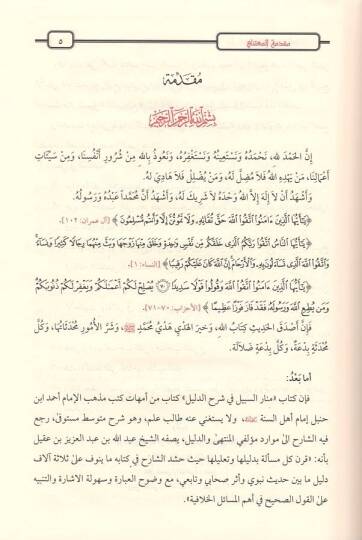 مقدمة المعتني
٥
مُقَدِّمَة
بِسْمِ اللَّهِ الرَّحْمَنِ الرَّحِيمِ
إِنَّ الحَمْدَ لله، نَحْمَدُهُ وَنَسْتَعِينُهُ وَنَسْتَغْفِرُهُ، وَنَعُوذُ بِاللهِ مِن شُرُورِ أَنْفُسِنَا، وَمِنْ سَيِّئَاتِ
أَعْمَالِنَا، مَنْ يَهْدِهِ اللهُ فَلَا مُضِلَّ لَهُ، وَمَنْ يُضْلِلْ فَلَا هَادِيَ لَهُ.
وَأَشْهَدُ أَنْ لَا إِلَهَ إِلَّا اللهُ وَحْدَهُ لَا شَرِيكَ لَهُ، وَأَشْهَدُ أَنَّ مُحَمَّداً عَبْدُهُ وَرَسُولُهُ.
﴿يَٰٓأَيُّهَا ٱلَّذِينَ ءَامَنُوا۟ ٱتَّقُوا۟ ٱللَّهَ حَقَّ تُقَاتِهِۦ وَلَا تَمُوتُنَّ إِلَّا وَأَنتُم مُّسْلِمُونَ﴾ [آل عمران: ١٠٢].
﴿يَٰٓأَيُّهَا ٱلنَّاسُ ٱتَّقُوا۟ رَبَّكُمُ ٱلَّذِى خَلَقَكُم مِّن نَّفْسٍ وَٰحِدَةٍ وَخَلَقَ مِنْهَا زَوْجَهَا وَبَثَّ مِنْهُمَا رِجَالًا كَثِيرًا وَنِسَآءً
وَٱتَّقُوا۟ ٱللَّهَ ٱلَّذِى تَسَآءَلُونَ بِهِۦ وَٱلْأَرْحَامَ إِنَّ ٱللَّهَ كَانَ عَلَيْكُمْ رَقِيبًا﴾ [النساء: ١].
﴿يَٰٓأَيُّهَا ٱلَّذِينَ ءَامَنُوا۟ ٱتَّقُوا۟ ٱللَّهَ وَقُولُوا۟ قَوْلًا سَدِيدًا ۝٧٠ يُصْلِحْ لَكُمْ أَعْمَٰلَكُمْ وَيَغْفِرْ لَكُمْ ذُنُوبَكُمْ
وَمَن يُطِعِ ٱللَّهَ وَرَسُولَهُۥ فَقَدْ فَازَ فَوْزًا عَظِيمًا﴾ [الأحزاب: ٧٠-٧١].
فَإِنَّ أَصْدَقَ الحَدِيثِ كِتَابُ اللهِ، وَخَيرَ الهَدْيِ هَدْيُ مُحَمَّدٍ ﷺ، وَشَرَّ الأُمُورِ مُحْدَثَاتُهَا، وَكُلَّ
مُحْدَثَةٍ بِدْعَةٌ، وَكُلَّ بِدْعَةٍ ضَلَالَة.
أما بَعْدُ:
فإن كتاب «منار السبيل في شرح الدليل» من أمهات كتب مذهب الإمام أحمد ابن
حنبل إمام أهل السنة، ولا يستغني عنه طالب علم، وهو شرح متوسط مستوفىً، رجع
فيه الشارح إلى موارد مؤلفي المنتهىٰ والدليل، يصفه الشيخ عبد الله بن عبد العزيز بن عقيل
بأنه: «قرن كل مسألة بدليلها وتعليلها حيث حشد الشارح في كتابه ما ينوف علىٰ ثلاثة آلاف
دليل ما بين حديث نبوي وأثر صحابي وتابعي، مع وضوح العبارة وسهولة الاشارة والتنبيه
علىٰ القول الصحيح في أهم المسائل الخلافية».